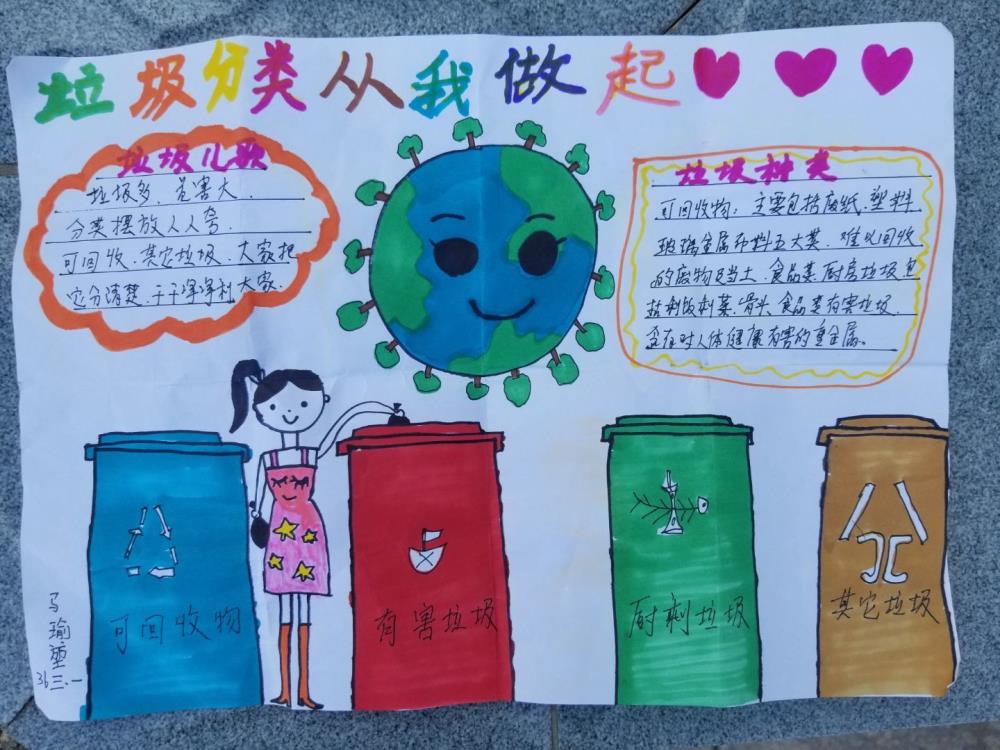 垃圾分类从我做起
垃圾儿歌
垃圾多、危害大
分类摆放人人夸
可回收、其它垃圾、大家把
它分清楚、干干净净利大家
垃圾种类
可回收物：主要包括废纸、塑料
玻璃金属布料五大类、难以回收
的废物及渣土、食品类厨房垃圾包
括剩饭剩菜、骨头、食品类有害垃圾、
对人体健康有害的重金属。
可回收物
有害垃圾
厨剩垃圾
其它垃圾
马瑜
36 三、一